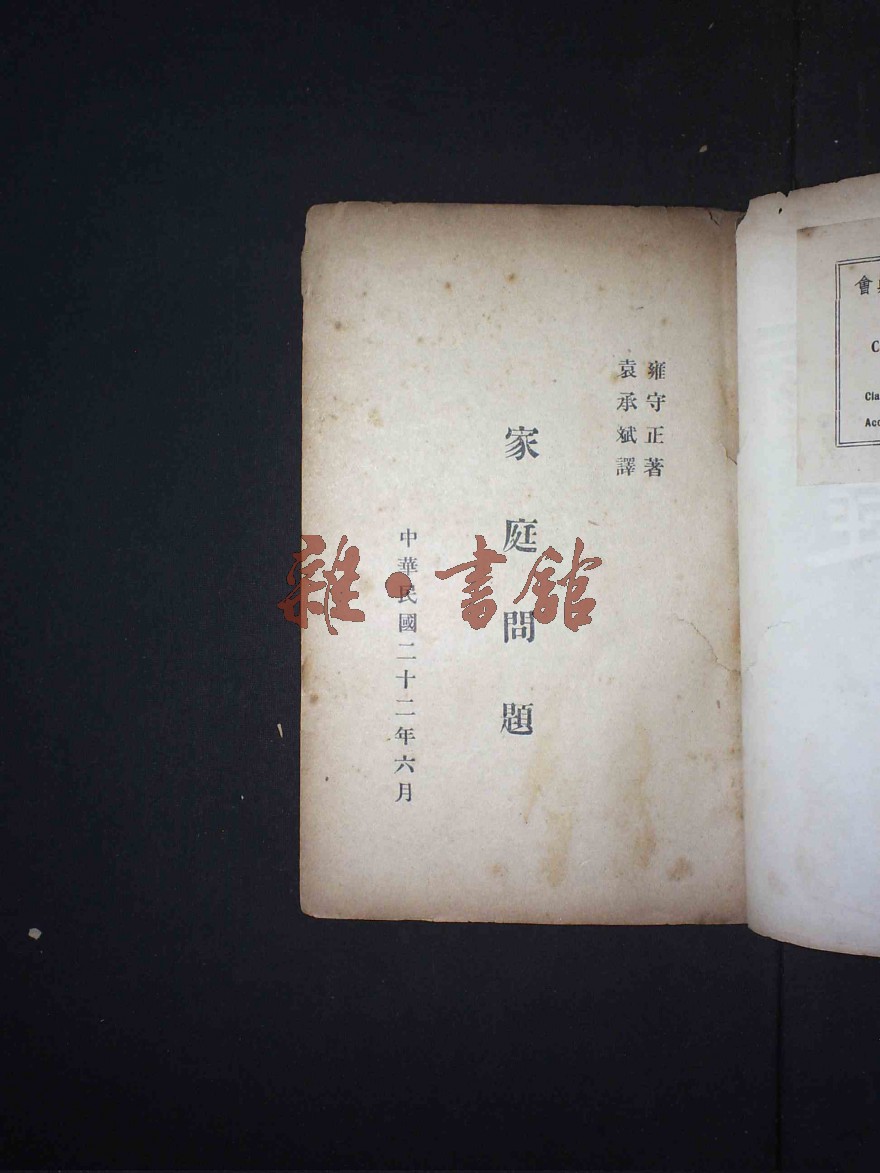 雍守正著
袁承斌譯
家庭問題
中華民國二十二年六月
雜·書館
會
C
Cla
Acc